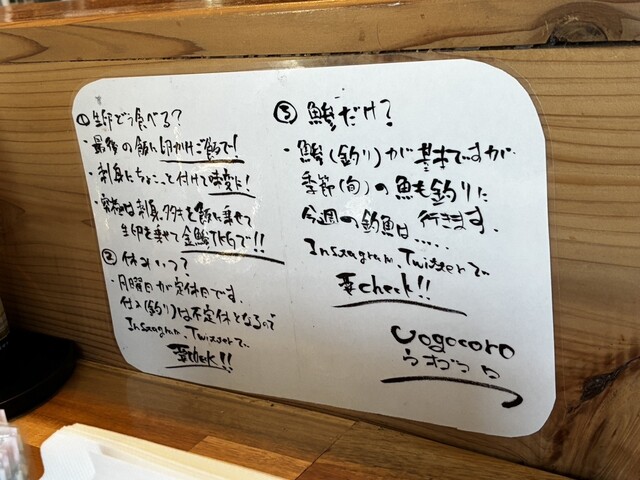 ① 生卵どう食べる?
・最後の飯に卵かけご飯で!
・刺身にちょこっと付けて味変に!
・究極は刺身、タタキを飯に乗せて
生卵を乗せて金鯵TKGで!!
② 休みいつ?
・月曜日が定休日です。
仕入(釣り)は不定休となるので
Instagram、Twitterで
要check!!
③ 鯵だけ?
・鯵(釣り)が基本ですが
季節(旬)の魚も釣りに
行きます。
今週の釣魚は.....
Instagram、Twitterで
要check!!
uogocoro
うおごころ